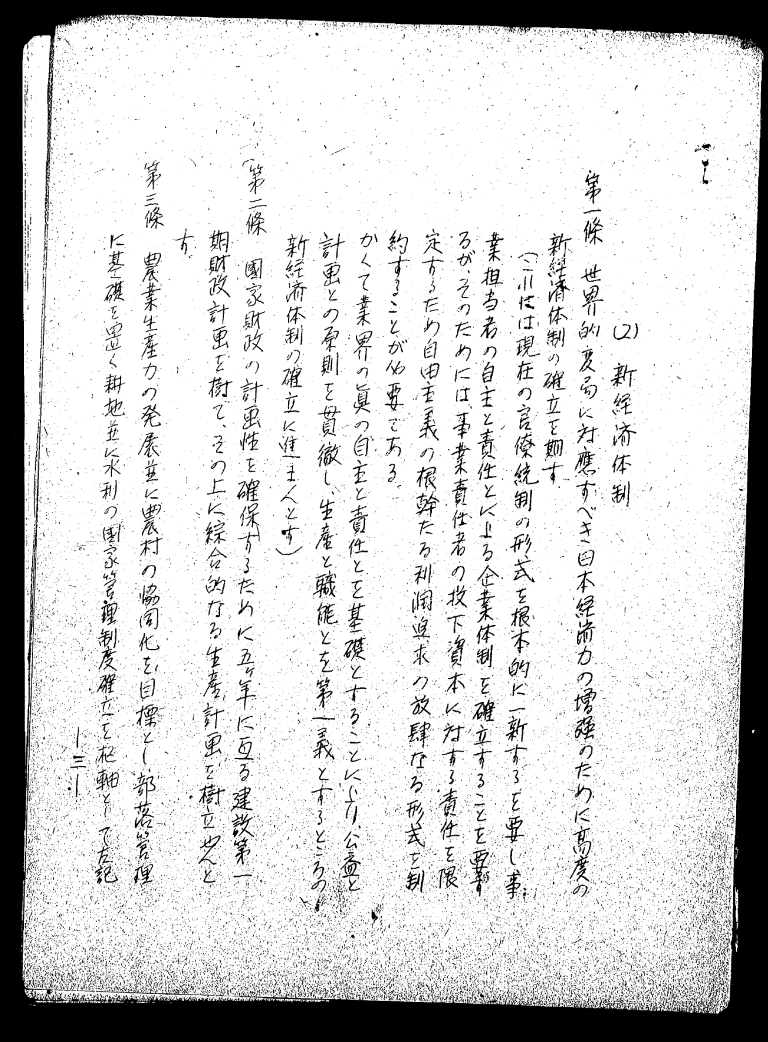 (2) 新経済体制
第一條 世界的変局に対應すべき日本経済力の増强のために高度の
新経済体制の確立を期す
(これは現在の官僚統制の形式を根本的に一新するを要し事
業担当者の自主と責任とによる企業体制を確立することを要す
るが、そのためには、事業責任者の投下資本に対する責任を限
定するため自由主義の根幹たる利潤追求の放肆なる形式を制
約することが必要である
かくて業界の眞の自主と責任とを基礎とすることにより、公益と
計画との原則を貫徹し、生産と職能とを第一義とするところの
新経済体制の確立に進まんとす)
第二條 國家財政の計画性を確保するために五ヶ年に亙る建設第一
期財政計画を樹て、その上に綜合的なる生産計画を樹立せんと
す
第三條 農業生産力の発展並に農村の協同化を目標とし部落管理
に基礎を置く耕地並に水利の国家管理制度確立を枢軸として左記
―三―